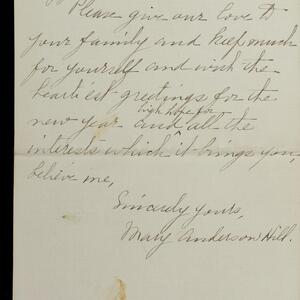 Please give our love to
your family and keep much
for yourself and with the
heartiest greetings for the
high hope for
new year and ^ all the
interests which it brings you,
believe me,
Sincerely yours,
Mary Anderson Hill.